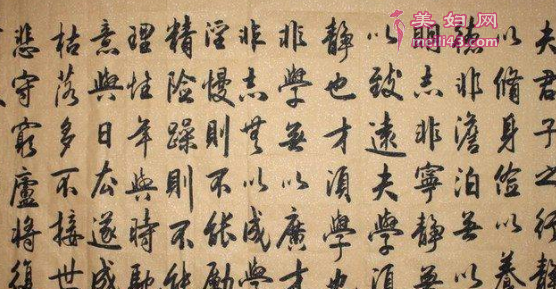 夫君子之行靜
以脩身儉以養
德非澹泊無以
明志非寧靜無
以致遠夫學須
靜也才須學也
非學無以廣才
非志無以成學
淫慢則不能勵
精險躁則不能
理性年與時馳
意與日去遂成
枯落多不接世
悲守窮廬將復
美妇网
meili43.com